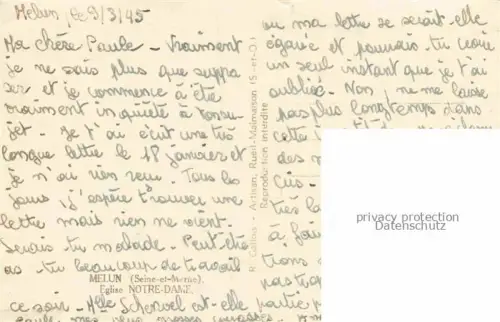 Melun, le 9/3/45
Ma chère Paule - Vraiment
je ne sais plus que suppo
ser et je commence à être
vraiment inquiète à ton su
jet. Je t'ai écrit une très
longue lettre le 18 janvier et
je n'ai rien reçu. Tous les
jours j'espère trouver une
lettre mais rien ne vient.
Serais-tu malade - Peut-être
as-tu beaucoup de travail
MELUN (Seine-et-Marne).
Eglise NOTRE-DAME.
ce soir - Melle est-elle partie
R. Gallois - Artisan, Rueil-Malmaison (S.-et-O.)
Reproduction interdite
ou ma lettre se serait-elle
égarée et pouvais-tu croire
un seul instant que je t'ai
oubliée. Non, ne me laisse
pas plus longtemps dans
cette
des n
très la
à fair
tions
pas trop
privacy protection
Datenschutz